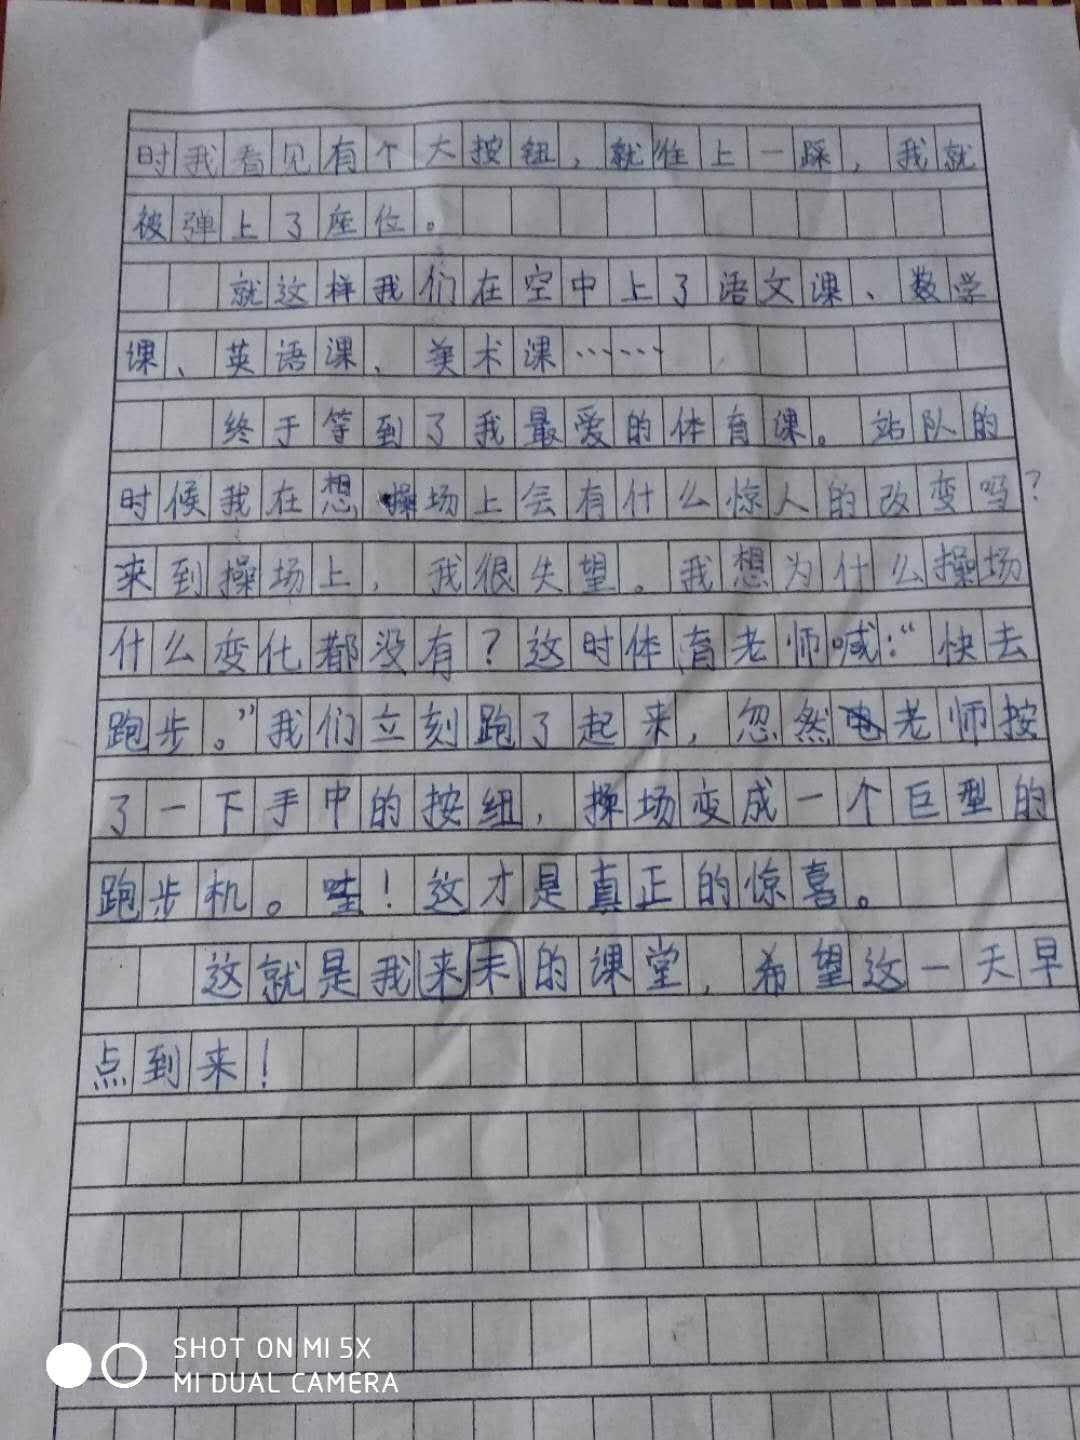 时我看见有个大按钮，就往上一踩，我就
被弹上了座位。
就这样我们在空中上了语文课、数学
课、英语课、美术课……
终于等到了我最爱的体育课。站队的
时候我在想操场上会有什么惊人的改变吗？
来到操场上，我很失望。我想为什么操场
什么变化都没有？这时体育老师喊：“快去
跑步。”我们立刻跑了起来，忽然老师按
了一下手中的按纽，操场变成一个巨型的
跑步机。哇！这才是真正的惊喜。
这就是我来未的课堂，希望这一天早
点到来！
SHOT ON MI 5X
MI DUAL CAMERA